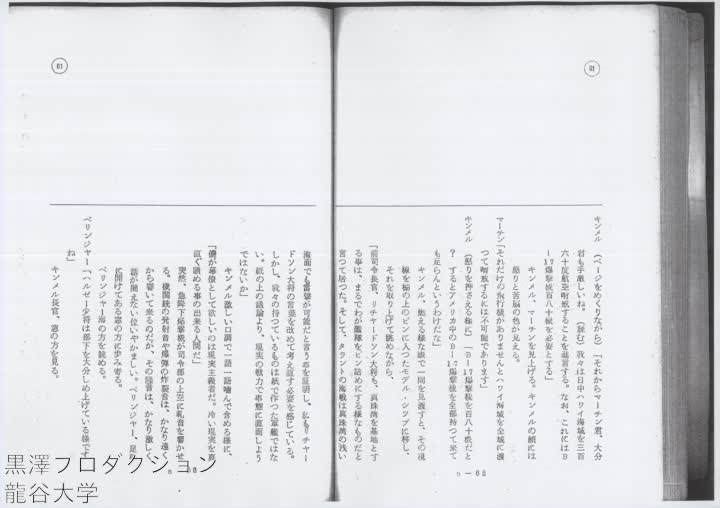 81
キンメル （ページをめくりながら）「それからマーチン君、大分
君も手厳しいね。（読む）我々は日中ハワイ海域を三百
六十度航空哨戒することを進言する。なお、これにはB
ー17爆撃機百八十機を必要とする」
キンメル、マーチンを見上げる。キンメルの顔には
怒りと苦脳の色が見える。
マーチン「それだけの飛行機がありませんとハワイ海域を全域に渡
つて哨戒するには不可能であります」
キンメル （怒りを押さえる様に）「Bー17爆撃機を百八十機だと
？ するとアメリカ中のBー17爆撃機を全部持つて来て
も足らんというわけだな」
キンメル、燃える様な眼で一同を見渡すと、その視
線を机の上のビンに入つたモデル・シップに移し、
それを取り上げて眺めながら、
「前司令長官、リチャードソン大将も、真珠湾を基地とす
る事は、まるでわが艦隊をビン詰めにする様なものだと
言つて居つた。そして、タラントの海戦は真珠湾の浅い
81
海面でも雷撃が可能だと言う事を証明し、私もリチャー
ドソン大将の言葉を改めて考え直す必要を感じている。
しかし、我々の持つているものは紙で作つた軍艦ではな
い。紙の上の議論より、現実の戦力で事態に直面しよう
ではないか」
キンメル激しい口調で一語一語噛んで含める様に、
「僕が幕僚として欲しいのは現実主義者だ。冷い現実を真
直ぐ眺める事の出来る人間だ」
突然、急降下爆撃機が司令部の上空に轟音を響かせ
る。機関銃の発射音や爆弾の炸裂音は、かなり遠く
から響いて来るのだが、その騒音は、かなり激しく
話が聞えたい位いやかましい。ベリンジャー、足早
に開けてある窓の方に歩み寄る。
ベリンジャー海の方を眺める。
ベリンジャー「ハルゼー少将は部下を大分しめ上げている様です
ね」
キンメル長官、窓の方を見る。
黒澤プロダクション
龍谷大学